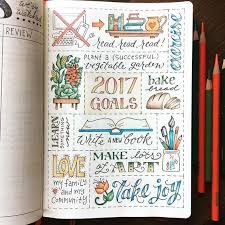 REVIEW
read, read, read!
exercise
PLANT A (SUCCESSFUL)
vegetable garden!
2017
GOALS
bake
bread
LEARN
write a new book
LOVE
my family and
my community
MAKE lots of
ART
Make joy